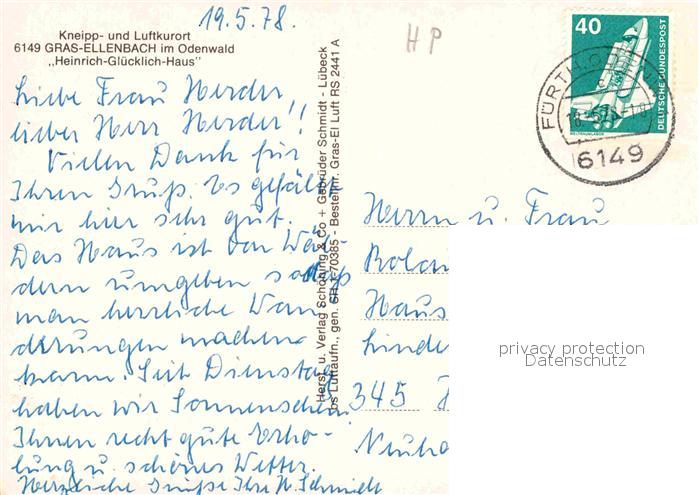 19.5.78.
HP
Kneipp- und Luftkurort
6149 GRAS-ELLENBACH im Odenwald
„Heinrich-Glücklich-Haus"
Liebe Frau Herder,
lieber Herr Herder!!
Vielen Dank für
Ihren Gruß. Es gefällt
mir hier sehr gut.
Das Haus ist von Wäl-
dern umgeben so daß
man herrliche Wan
derungen machen
kann. Seit Dienstag
haben wir Sonnenschein
Ihnen recht gute Erho-
lung u. schönes Wetter.
Herzliche Grüße Ihre H. Schmidt
Herst. u. Verlag Schöning & Co + Gebrüder Schmidt - Lübeck
os Luftaufn., gen. SH 1-70385 - Bestellnr. Gras-El Luft RS 2441 A
40
DEUTSCHE BUNDESPOST
WELTRAUMLABOR
FÜRTH, ODENW
6149
Herrn u. Frau
Rolan
Haus
Linde
345 H
Neuha
privacy protection
Datenschutz